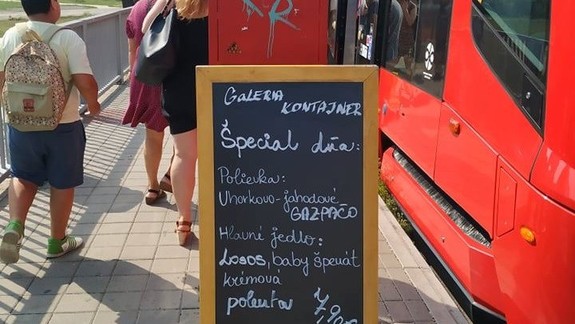 GALERIA
KONTAJNER
Špecial dňa:
Polievka:
Uhorkovo-jahodové
GAZPAČO
Hlavné jedlo:
LOSOS, baby špenát
krémová
polentou
7,90€
KR